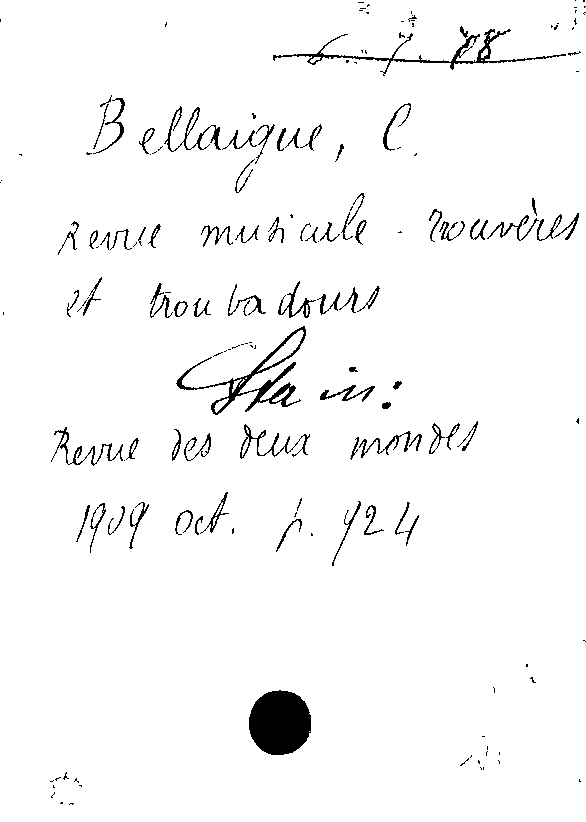 Bellaigue, C.
Revue musicale. Trouvères
et troubadours
Sta in:
Revue des deux mondes
1909 oct. p. 924